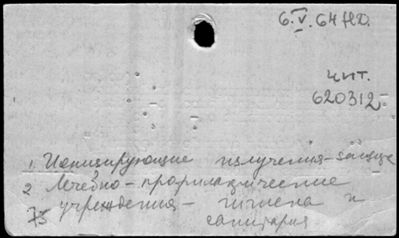 6.V.64 НД.
чит.
620312
1. Ионизирующие излучения-защита
2 Лечебно-профилактические
учреждения- гигиена и
санитария
75